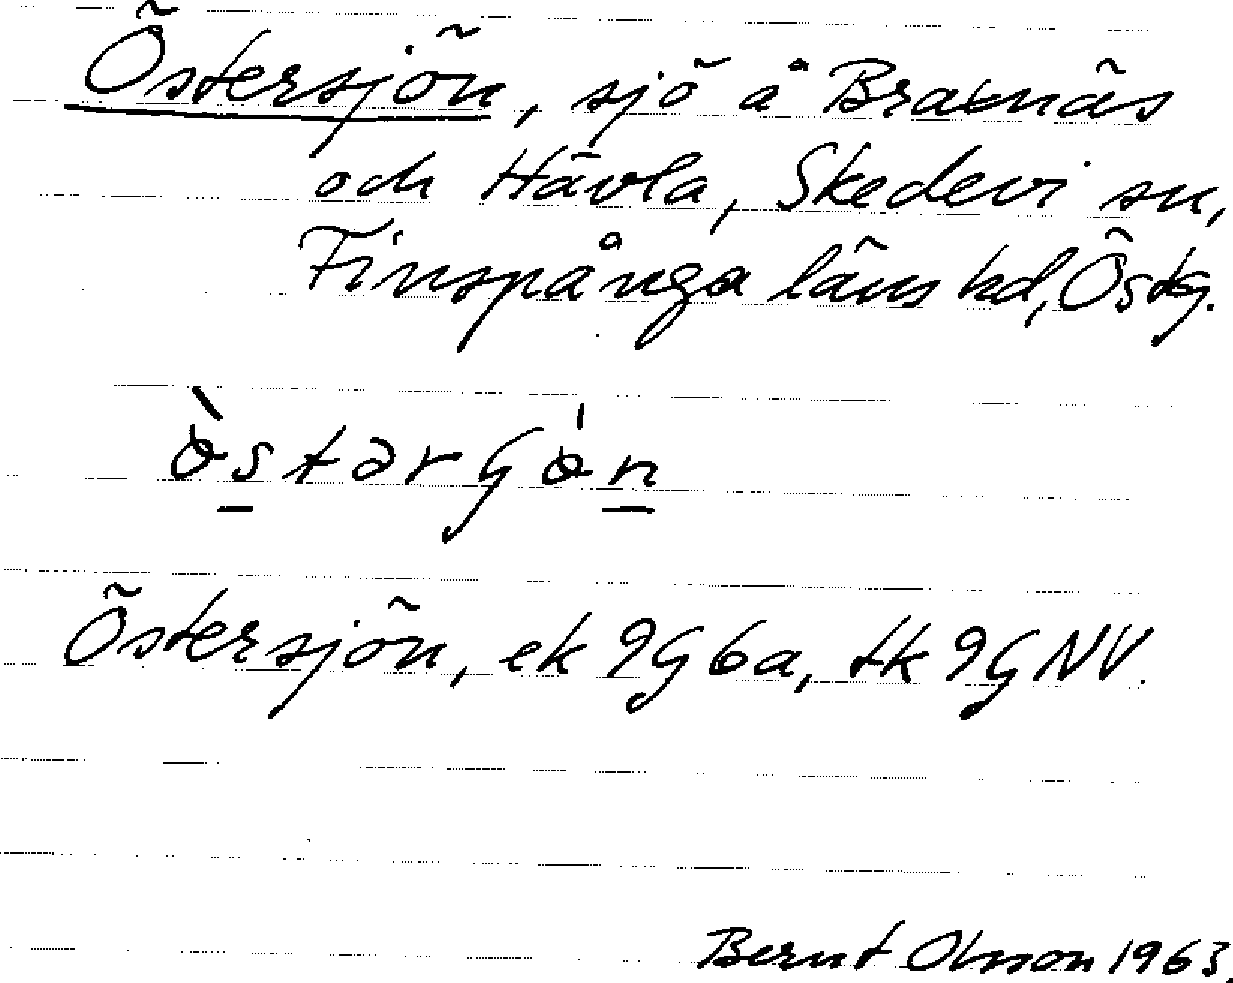 Östersjön, sjö å Braxnäs
och Hävla, Skedevi sn,
Finspånga läns hd, Östg.
Östersjön, ek 9G6a, tk 9GNV.
Bernt Olsson 1963.